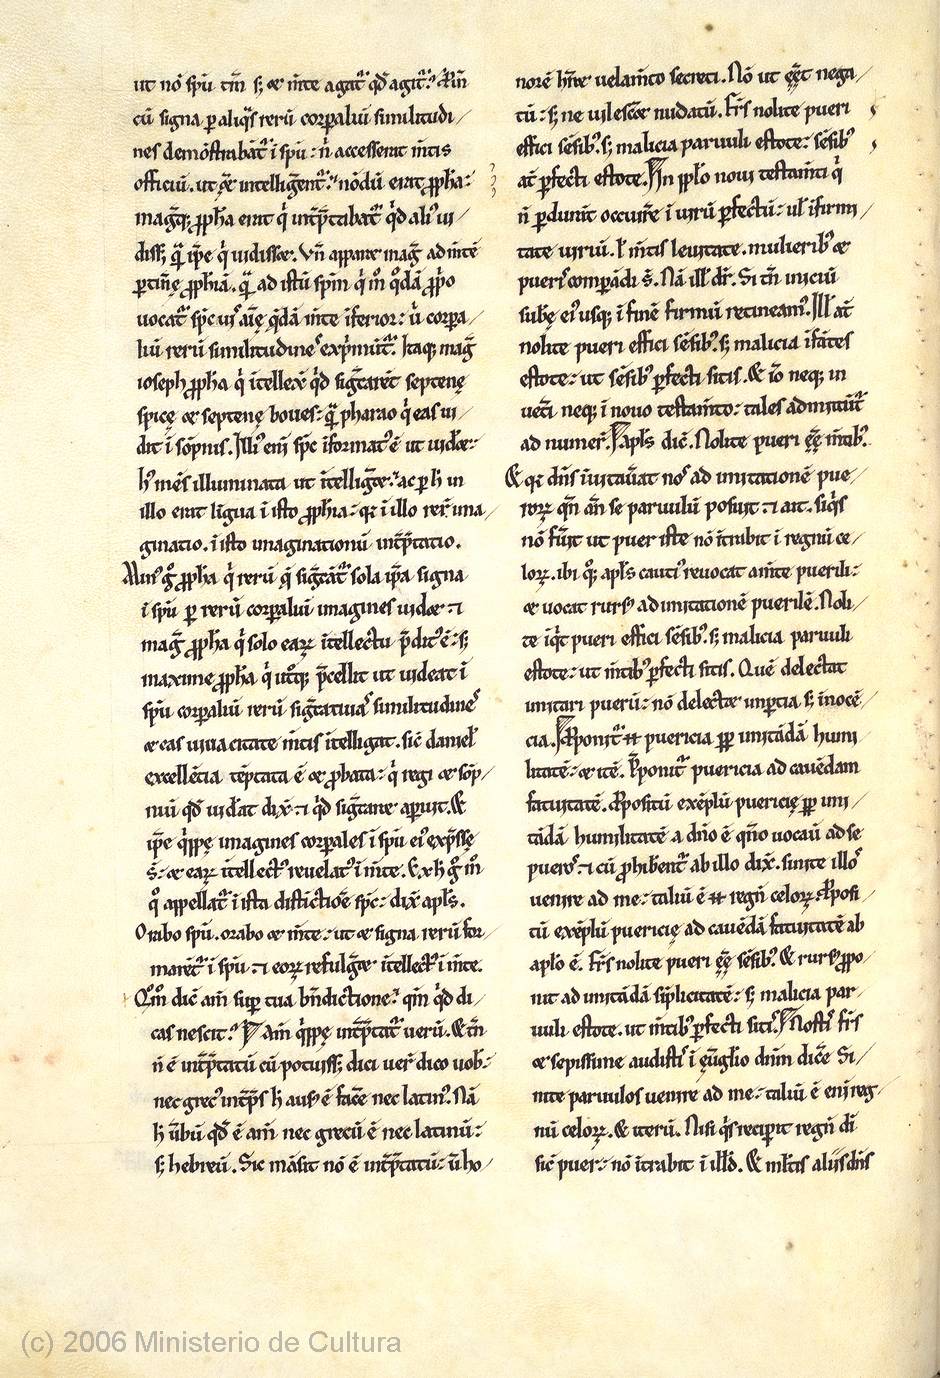 ut nō spū tm̄ s; & m̄te agat᷑ qd̄ agit᷑. &en̄
cū signa p aliqͥs rerū corꝑaliū similitudi/
nes demōstrabāt᷑ ī spū: n̄ accesserat m̄tis
officiū. ut & intelligēt᷑. nōdū erat ꝓph̄a:
magisq; ꝓph̄a erat qͥ int̄p̄tabat᷑ qd̄ aliꝰ ui/
diss; qͣ ip̄e qͥ uidiss&. Vn̄ apparet magͥ ad m̄tē
ꝑtinę ꝓph̄iā. qͣ ad istū spm̄ qͥ mͦ qͦdā ꝓpͦ
uocat᷑ spc̄ uiͬ aīę qͦdā m̄te īferior: ū corꝑa/
liū rerū similitudineˢ exp̄mūt᷑. Itaq; magͥ
ioseph ꝓph̄a qͥ ītellexͭ qͥd sigͣret septenę
spicę & septenę boues: qͣ pharao qͥ eas ui/
dit ī sōpnis. Illiꝰ enī spc̄ īformatꝰ ē ut uider&:
hꝰ mēs illuminata ut ītelligͤr&. ac ꝑ h̄ in
illo erat lingua ī isto ꝓph̄ia: qꝛ ī illo rerͣ ima/
ginatio. ī isto imaginationū int̄p̄tatio.
Minꝰ gͦ ꝓph̄a qͥ rerū qͣ sigͣt᷑ sola ip̄a signa
ī spū ꝑ rerū corꝑaliū imagines uid& : ⁊
magͥ ꝓph̄a qͥ solo eaꝝ ītellectu p̄ditꝰ ē: s;
maxime ꝓph̄a qͥ utͦq; p̄cellit ut uideat ī
spū corꝑaliū rerū sigͣtiuaˢ similitudineˢ
& eas uiuacitate m̄tis ītelligat. sic̄ danieł
excellētia tēptata ē & ꝓbata: qͥ regi & sōp/
niū qd̄ uidͤat dixͭ ⁊ qͥd sigͣret aꝑuit. &
ip̄e qͥppę imagines corꝑales ī spū eiꝰ exp̄ssę
s̄: & eaꝝ ītellectꝰ reuelatꝰ ī m̄te. Ex h̄ gͦ mͦ
qͦ appellat᷑ ī ista distīctiōe spc̄: dixͭ apl̄s.
Orabo spū. orabo & m̄te: ut & signa rerū for/
marēt᷑ ī spū ⁊ eoꝝ refulgͤ& ītellectꝰ ī m̄te.
Qm̄ dic̄ am̄ suꝑ tua bn̄dictioneˢ qm̄ qͥd di/
cas nescit. Am̄ qͥppę int̄p̄tat᷑ uerū. & tn̄
n̄ ē int̄p̄tatū cū potuiss; dici uerͤ dico uob̄:
nec grecꝰ int̄p̄s h̄ ausꝰ ē fac̄e nec latinꝰ. Nā
h̄ ūbū qd̄ ē am̄ nec grecū ē nec latinū:
s; hebreū. Sic māsit nō ē int̄p̄tatū: ū ho/
norē h̄r& uelam̄to secreti. Nō ut eēt nega/
tū: s; ne uilesc& nudatū. Frs̄ nolite pueri
effici sēsibꝰ. s; malicia paruuli estote: sēsibꝰ
at̄ ꝑfecti estote. In ppl̄o noui testam̄ti qͥ
n̄ ꝑdunit occurrͤe ī uirū ꝑfectū: ul̄ īfirmi/
tate uiriū. ł m̄tis leuitate. mulieribꝰ &
puerꝭ comꝑādi s̄. Nā ill̓ dr̄. Si tn̄ iniciū
sub̄ę eiꝰ usq; ī finē firmū retineamꝰ. Ill̓ at̄
nolite pueri effici sēsibꝰ. s; malicia īfātes
estote: ut sēsibꝰ ꝑfecti sitis. & iͦo neq; in
uet̄i neq; ī nouo testam̄to: tales admittūt᷑
ad numerͣ. Apl̄s dic̄. Nolite pueri eē m̄tibꝰ.
& qꝛ dn̄s īuitauͤat noˢ ad imitationē pue/
roꝝ qn̄ an̄ se paruulū posuit ⁊ ait. siqͥs
nō fūit ut puer iste nō ītrabit ī regnū ce/
loꝝ. ibi qͦ; apl̄s cautiꝰ reuocat a m̄te puerili:
& uocat rursꝰ ad imitationē puerilē. Noli/
te īqͥt pueri effici sēsibꝰ. s; malicia paruuli
estote: ut m̄tibꝰ ꝑfecti sitis. Quē delectat
imitari puerū: nō delect& imꝑtia s; īnocē/
cia. Proponit᷑ n̄ puericia ꝓp imitādā humi/
litatē: & itē. Proponit᷑ puericia ad cauēdam
fatuitatē. Propositū exēplū puericię ꝓp imi/
tādā humilitatē a dn̄o ē qn̄o uocauͭ ad se
pueroˢ: ⁊ cū ꝓhiberēt᷑ ab illo dixͭ. sinite illoˢ
uenire ad me: taliū ē n̄ regn̄ celoꝝ. Proposi/
tū exēplū puericię ad cauēdā fatuitatē ab
apl̄o ē. Frs̄ nolite pueri eē sēsibꝰ. & rursꝰ ꝓpo/
nit ad imitādā simplicitatē: s; malicia par/
uuli estote. ut m̄tibꝰ ꝑfecti sitiˢ. Nostiˢ frs̄
& sepissime audistiˢ ī eūglio dn̄m dic̄e. Si/
nite paruulos uenire ad me: taliū ē enī reg/
nū celoꝝ. & iterū. Nisi qͥs reciꝑit regn̄ dī
sic̄ puer: nō ītrabit ī ill̄d. & ml̄tis aliis dn̄s
(c) 2006 Ministerio de Cultura